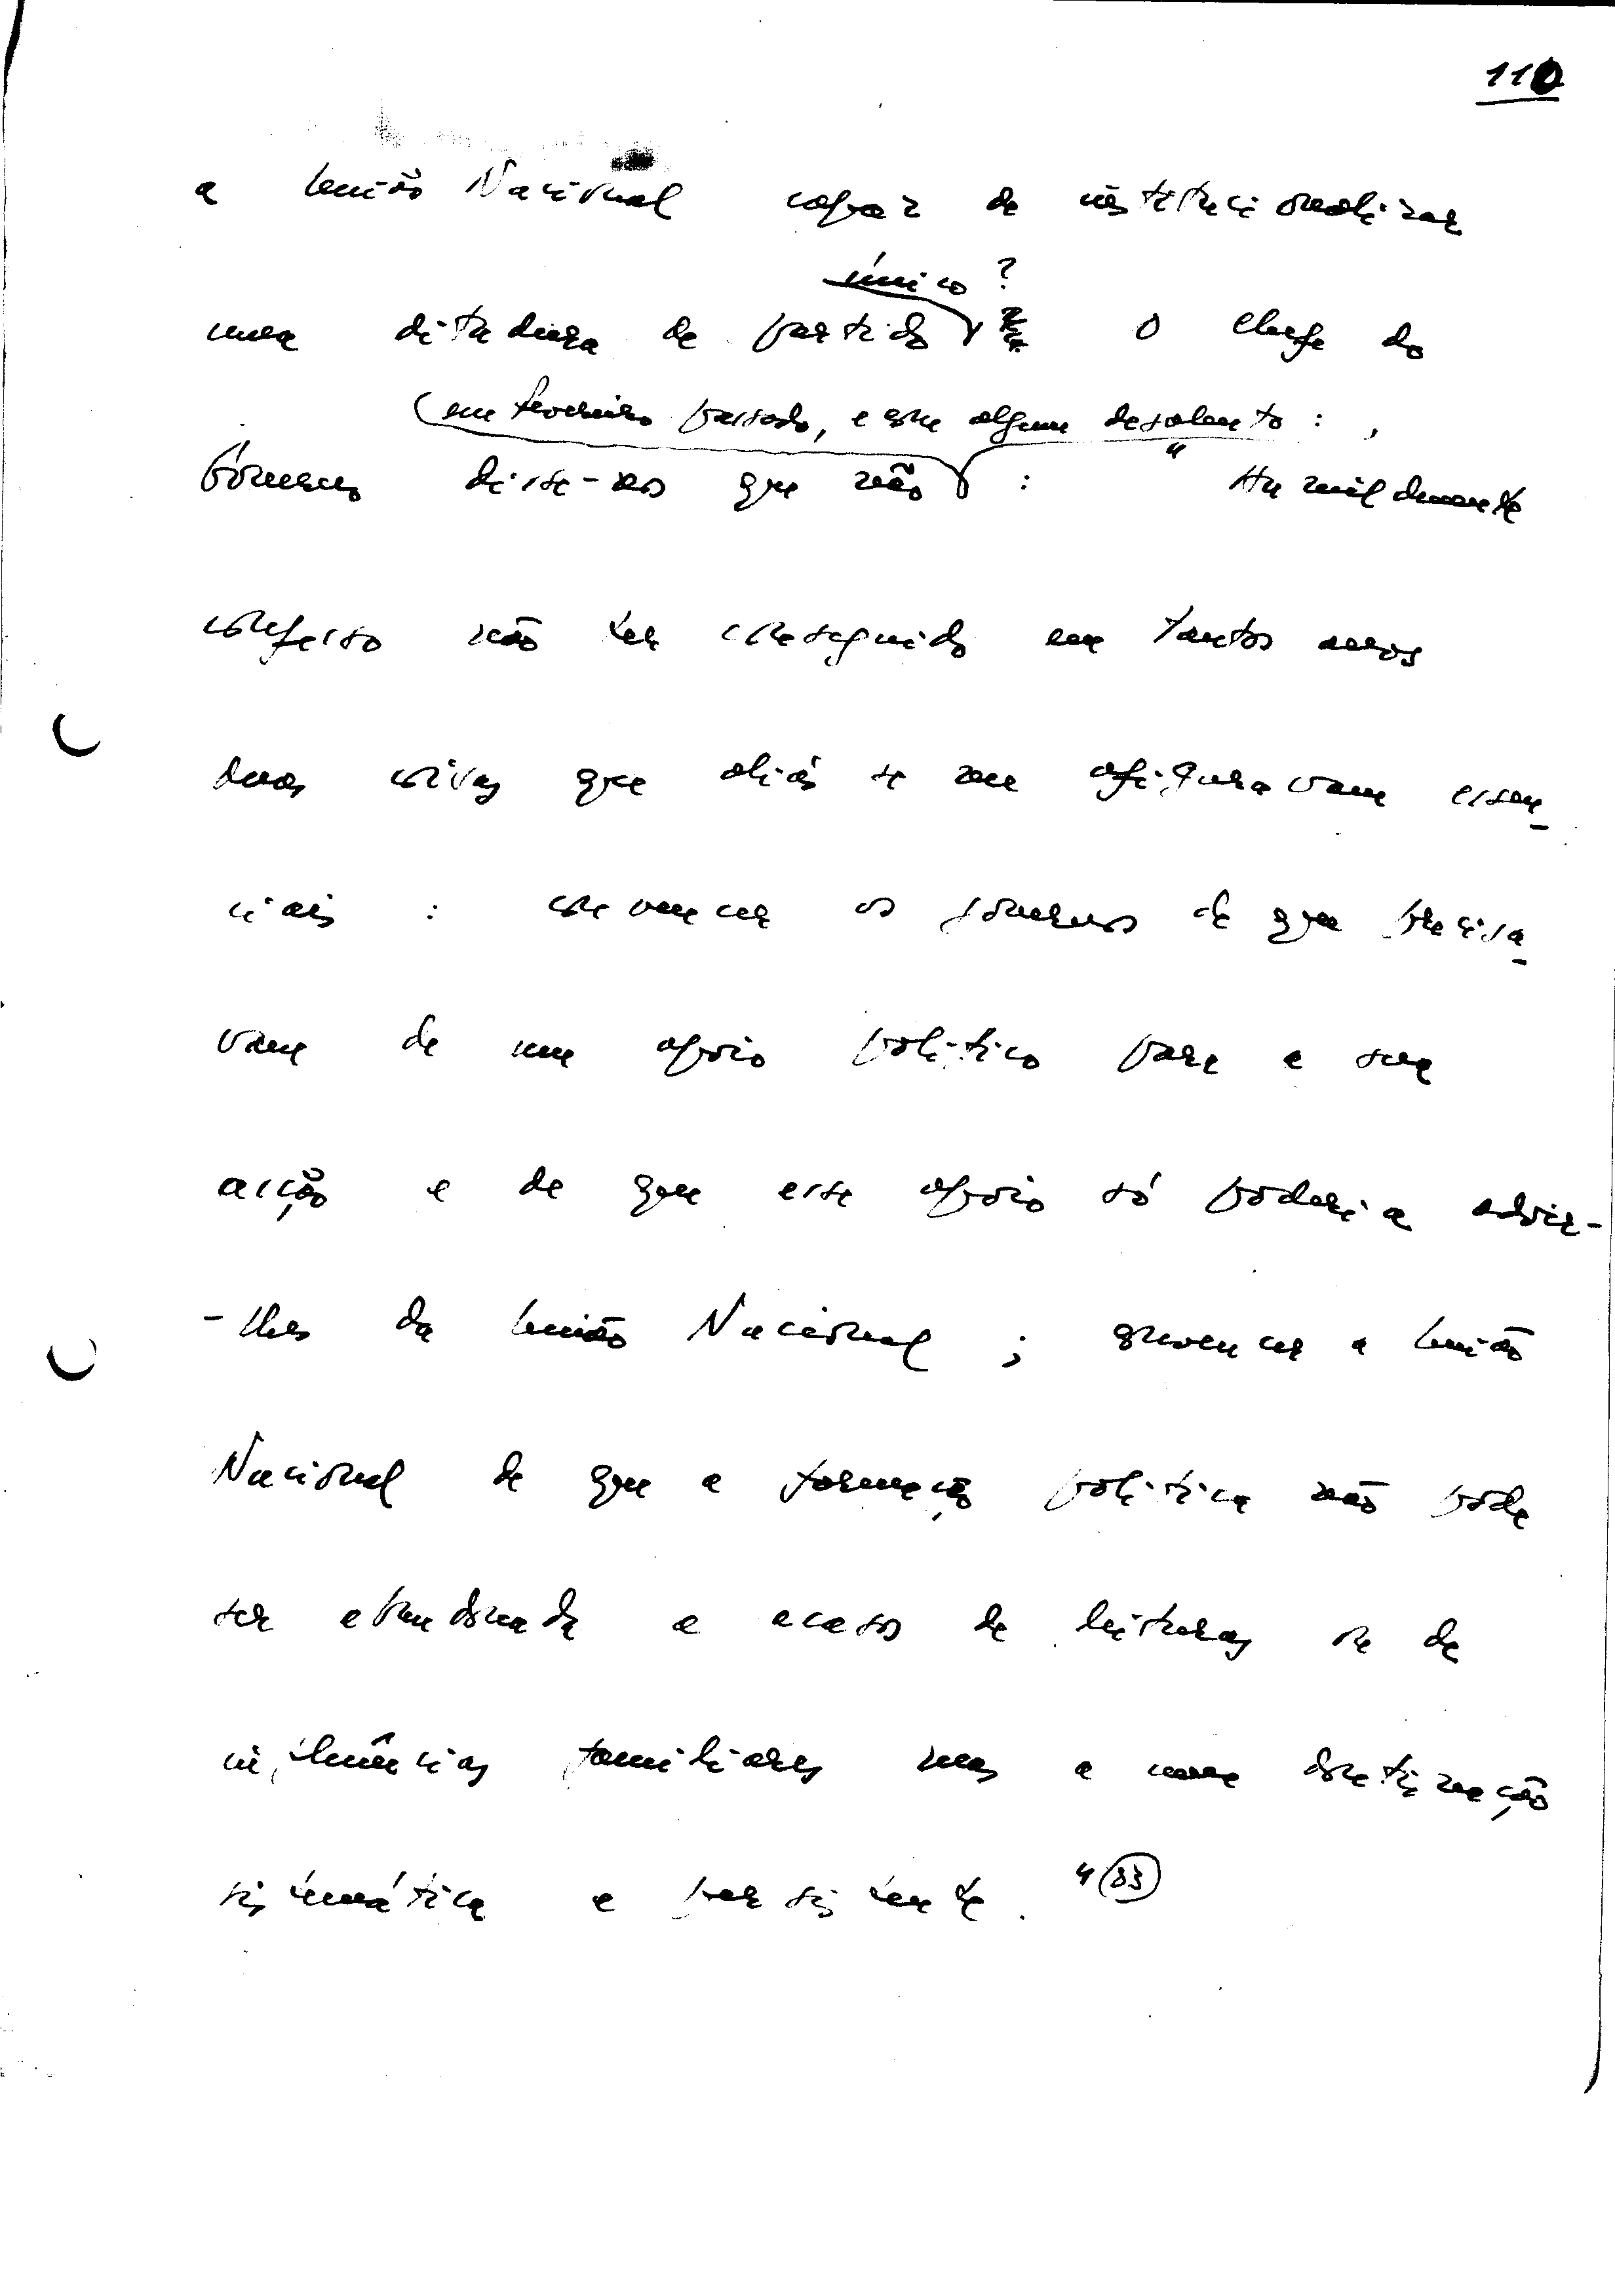 110
a União Nacional capaz de institucionalizar
único ?
uma ditadura de partido O chefe do
em fevereiro passado, e com algum desalento :
Governo disse-nos que não : " Humildemente
confesso não ter conseguido em tantos anos
duas coisas que aliás se me afiguravam essen-
ciais : convencer os governos de que precisa-
vam de um apoio político para a sua
acção e de que esse apoio só poderia advir-
-lhes da União Nacional ; convencer a União
Nacional de que a formação política não pode
ser abandonada a acasos de leituras ou de
influências familiares mas a uma doutrinação
sistemática e persistente. " (83)